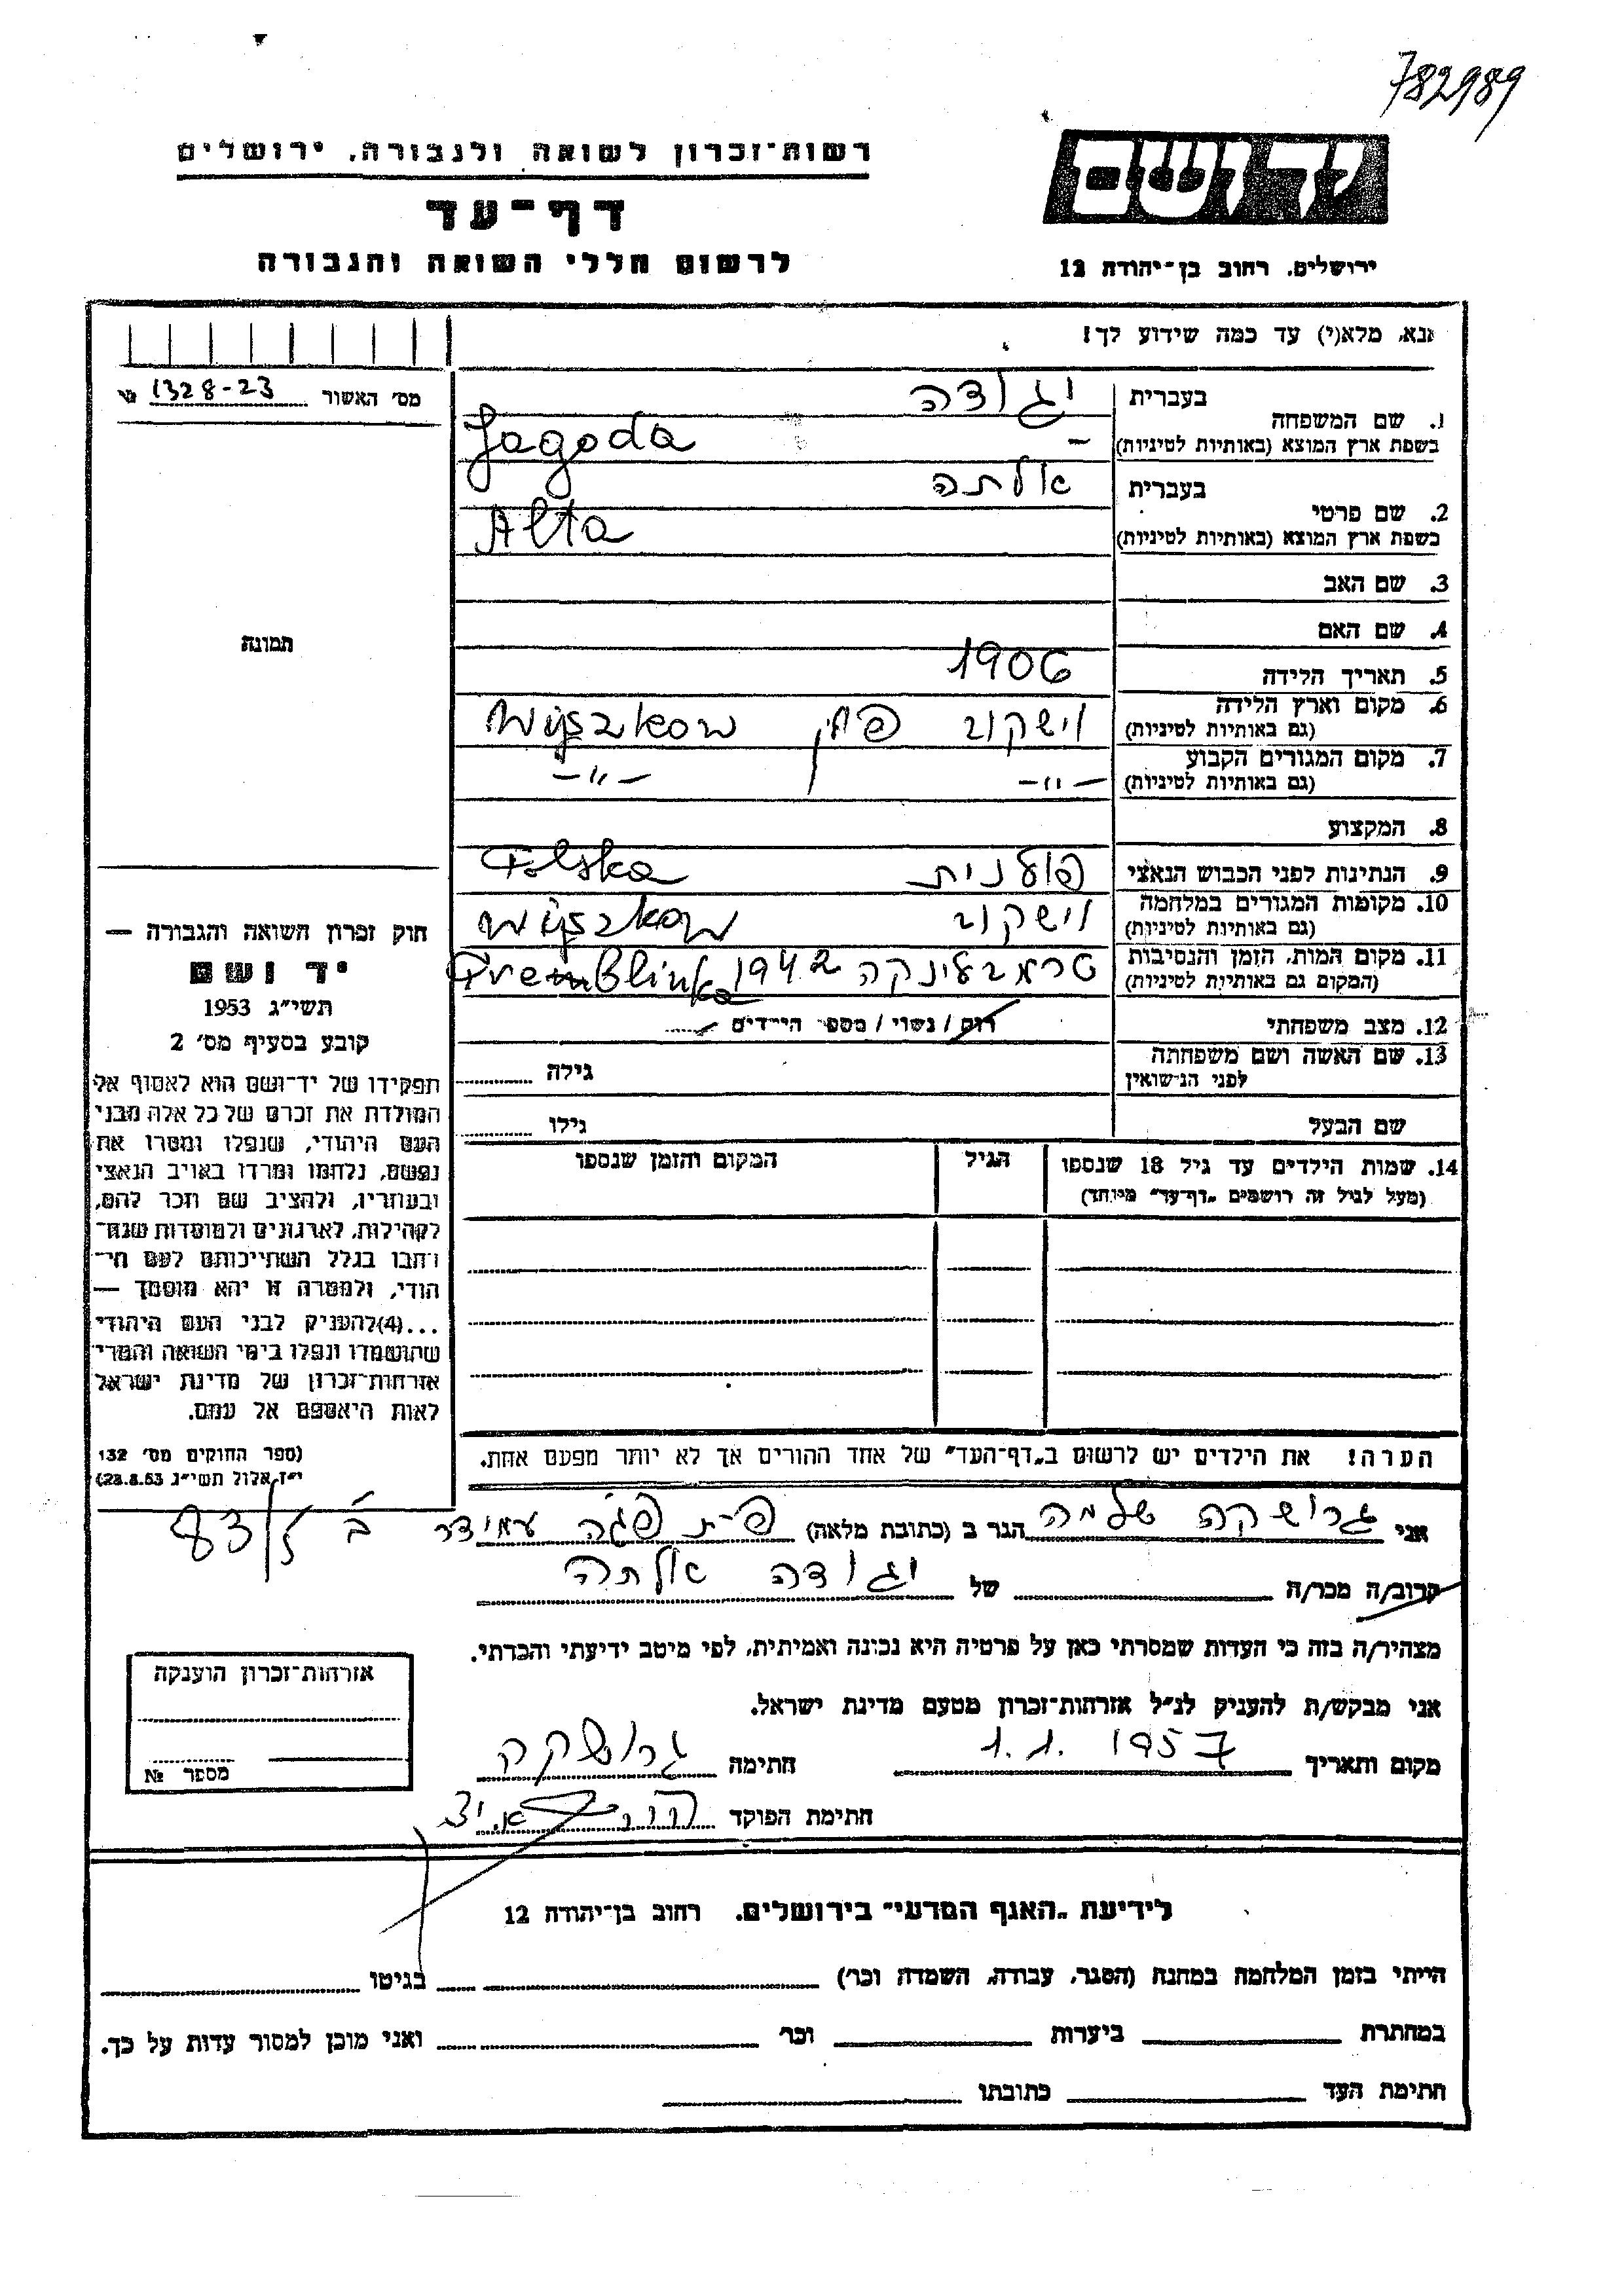 782989
רשות־זכרון לשואה ולגבורה, ירושלים
יד ושם
דף־עד
לרשום חללי השואה והגבורה
ירושלים, רחוב בן־יהודה 12
נא, מלא(י) עד כמה שידוע לך!
מס׳ האשור 1328-23
1. שם המשפחה בעברית יגודה
בשפת ארץ המוצא (באותיות לטיניות) – Jagoda
2. שם פרטי בעברית אלתה
בשפת ארץ המוצא (באותיות לטיניות) Alta
3. שם האב
4. שם האם
5. תאריך הלידה 1906
6. מקום וארץ הלידה וישקוב פולין Wyszkow
(גם באותיות לטיניות)
7. מקום המגורים הקבוע
(גם באותיות לטיניות) –״– –״–
8. המקצוע
9. הנתינות לפני הכבוש הנאצי פולנית Polska
10. מקומות המגורים במלחמה וישקוב Wyszkow
(גם באותיות לטיניות)
11. מקום המות, הזמן והנסיבות טרמבלינקה 1942 Tremblinka
(המקום גם באותיות לטיניות)
12. מצב משפחתי רווק / נשוי / מספר הילדים
13. שם האשה ושם משפחתה גילה
לפני הנישואין
שם הבעל גילו
14. שמות הילדים עד גיל 18 שנספו הגיל המקום והזמן שנספו
(מעל לגיל זה רושמים „דף־עד״ מיוחד)
הערה! את הילדים יש לרשום ב„דף־העד״ של אחד ההורים אך לא יותר מפעם אחת.
תמונה
חוק זכרון השואה והגבורה —
יד ושם
תשי״ג 1953
קובע בסעיף מס׳ 2
תפקידו של יד־ושם הוא לאסוף אל
המולדת את זכרם של כל אלה מבני
העם היהודי, שנפלו ומסרו את
נפשם, נלחמו ומרדו באויב הנאצי
ובעוזריו, ולהציב שם וזכר להם,
לקהילות, לארגונים ולמוסדות שנח־
רבו בגלל השתייכותם לעם הי־
הודי, ולמטרה זו יהא מוסמך —
...(4)להעניק לבני העם היהודי
שהושמדו ונפלו בימי השואה והמרי
אזרחות־זכרון של מדינת ישראל
לאות היאספם אל עמם.
(ספר החוקים מס׳ 132
י״ז אלול תשי״ג 28.8.53)
אני גרושקה שלמה הגר ב (כתובת מלאה) פ״ת פגה עמידר ב׳ 83/5
קרוב/ה מכר/ה של יגודה אלתה
מצהיר/ה בזה כי העדות שמסרתי כאן על פרטיה היא נכונה ואמיתית, לפי מיטב ידיעתי והכרתי.
אני מבקש/ת להעניק לנ״ל אזרחות־זכרון מטעם מדינת ישראל.
מקום ותאריך 1.1.1957 חתימה גרושקה
חתימת הפוקד
אזרחות־זכרון הוענקה
מספר №
לידיעת „האגף המדעי״ בירושלים, רחוב בן־יהודה 12
הייתי בזמן המלחמה במחנה (הסגר, עבודה, השמדה וכו׳) בגיטו
במחתרת ביערות וכו׳ ואני מוכן למסור עדות על כך.
חתימת העד כתובתו